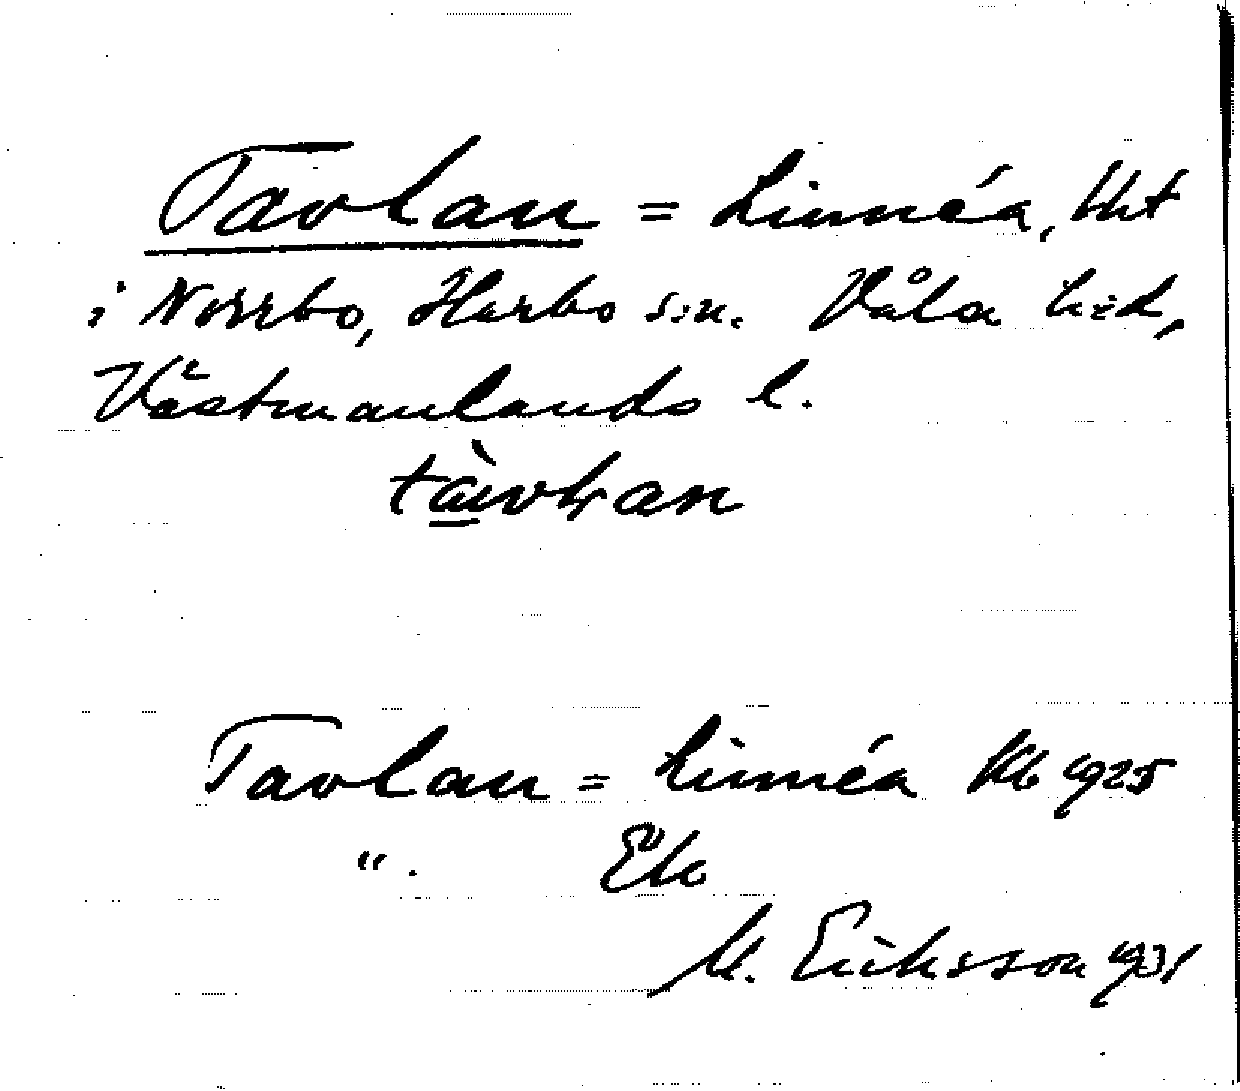 Tavlan = Linnéa, lht
i Norrbo, Harbo s:n. Våla h:d,
Västmanlands l.
tàvlan
Tavlan = Linnéa Kb 1925
". Ek
M. Eriksson 1931